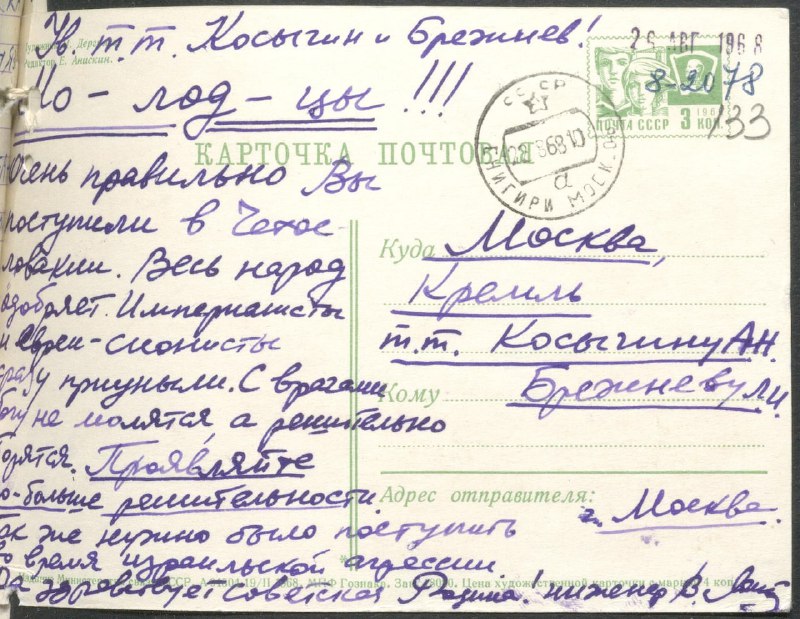 Ув. т.т. Косыгин и Брежнев!
Мо-лод-цы!!!
Редактор Е. Анаскин.
25 АВГ 1968
8-2078
133
ПОЧТА СССР 3 КОП.
СССР
СНИГИРИ МОСК. ОБЛ.
а
КАРТОЧКА ПОЧТОВАЯ
Очень правильно Вы
поступили в Чехос-
ловакии. Весь народ
одобряет. Империалисты
и евреи-сионисты
сразу приуныли. С врагами
богу не молятся, а решительно
борятся. Проявляйте
по-больше решительности.
Так же нужно было поступить
во время израильской агрессии.
Да здравствует Советская Родина! инженер В.
Куда Москва,
Кремль
т.т. Косыгину А.Н.
Кому Брежневу Л.И.
Адрес отправителя:
г. Москва.
Издание Министерства связи СССР. 19/II 1968. МПФ Гознака. Цена художественной карточки с маркой 4 коп.